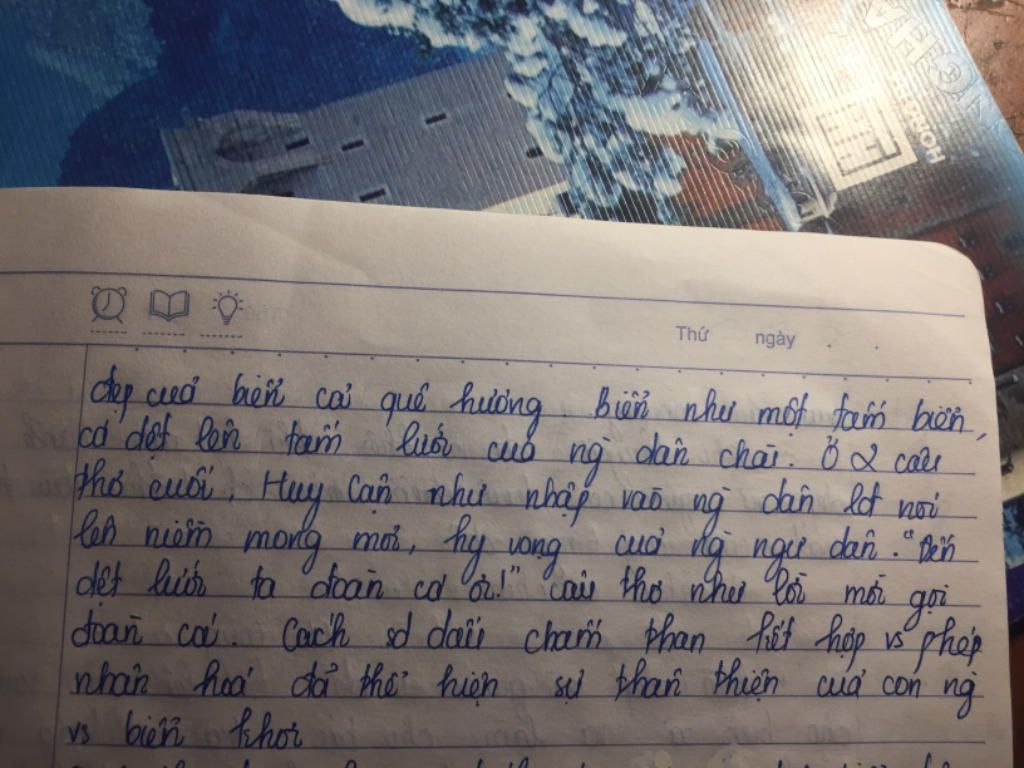 NGHĨA
HONARE
Thứ ngày
đẹp cuả biển cả quê hương Biển như một tấm biển,
cá dệt lên tấm lưới cuả ng dân chài. Ở 2 câu
thơ cuối, Huy Cận như nhập vaò ng dân để nói
lên niềm mong mỏi, hy vọng cuả ng ngư dân. "Đến
dệt lưới ta đoàn cá ơi!" câu thơ như lời mời gọi
đoàn cá. Cách sd dấu chấm than kết hợp vs phép
nhân hoá đã thể hiện sự thân thiện cuả con ng
vs biển khơi